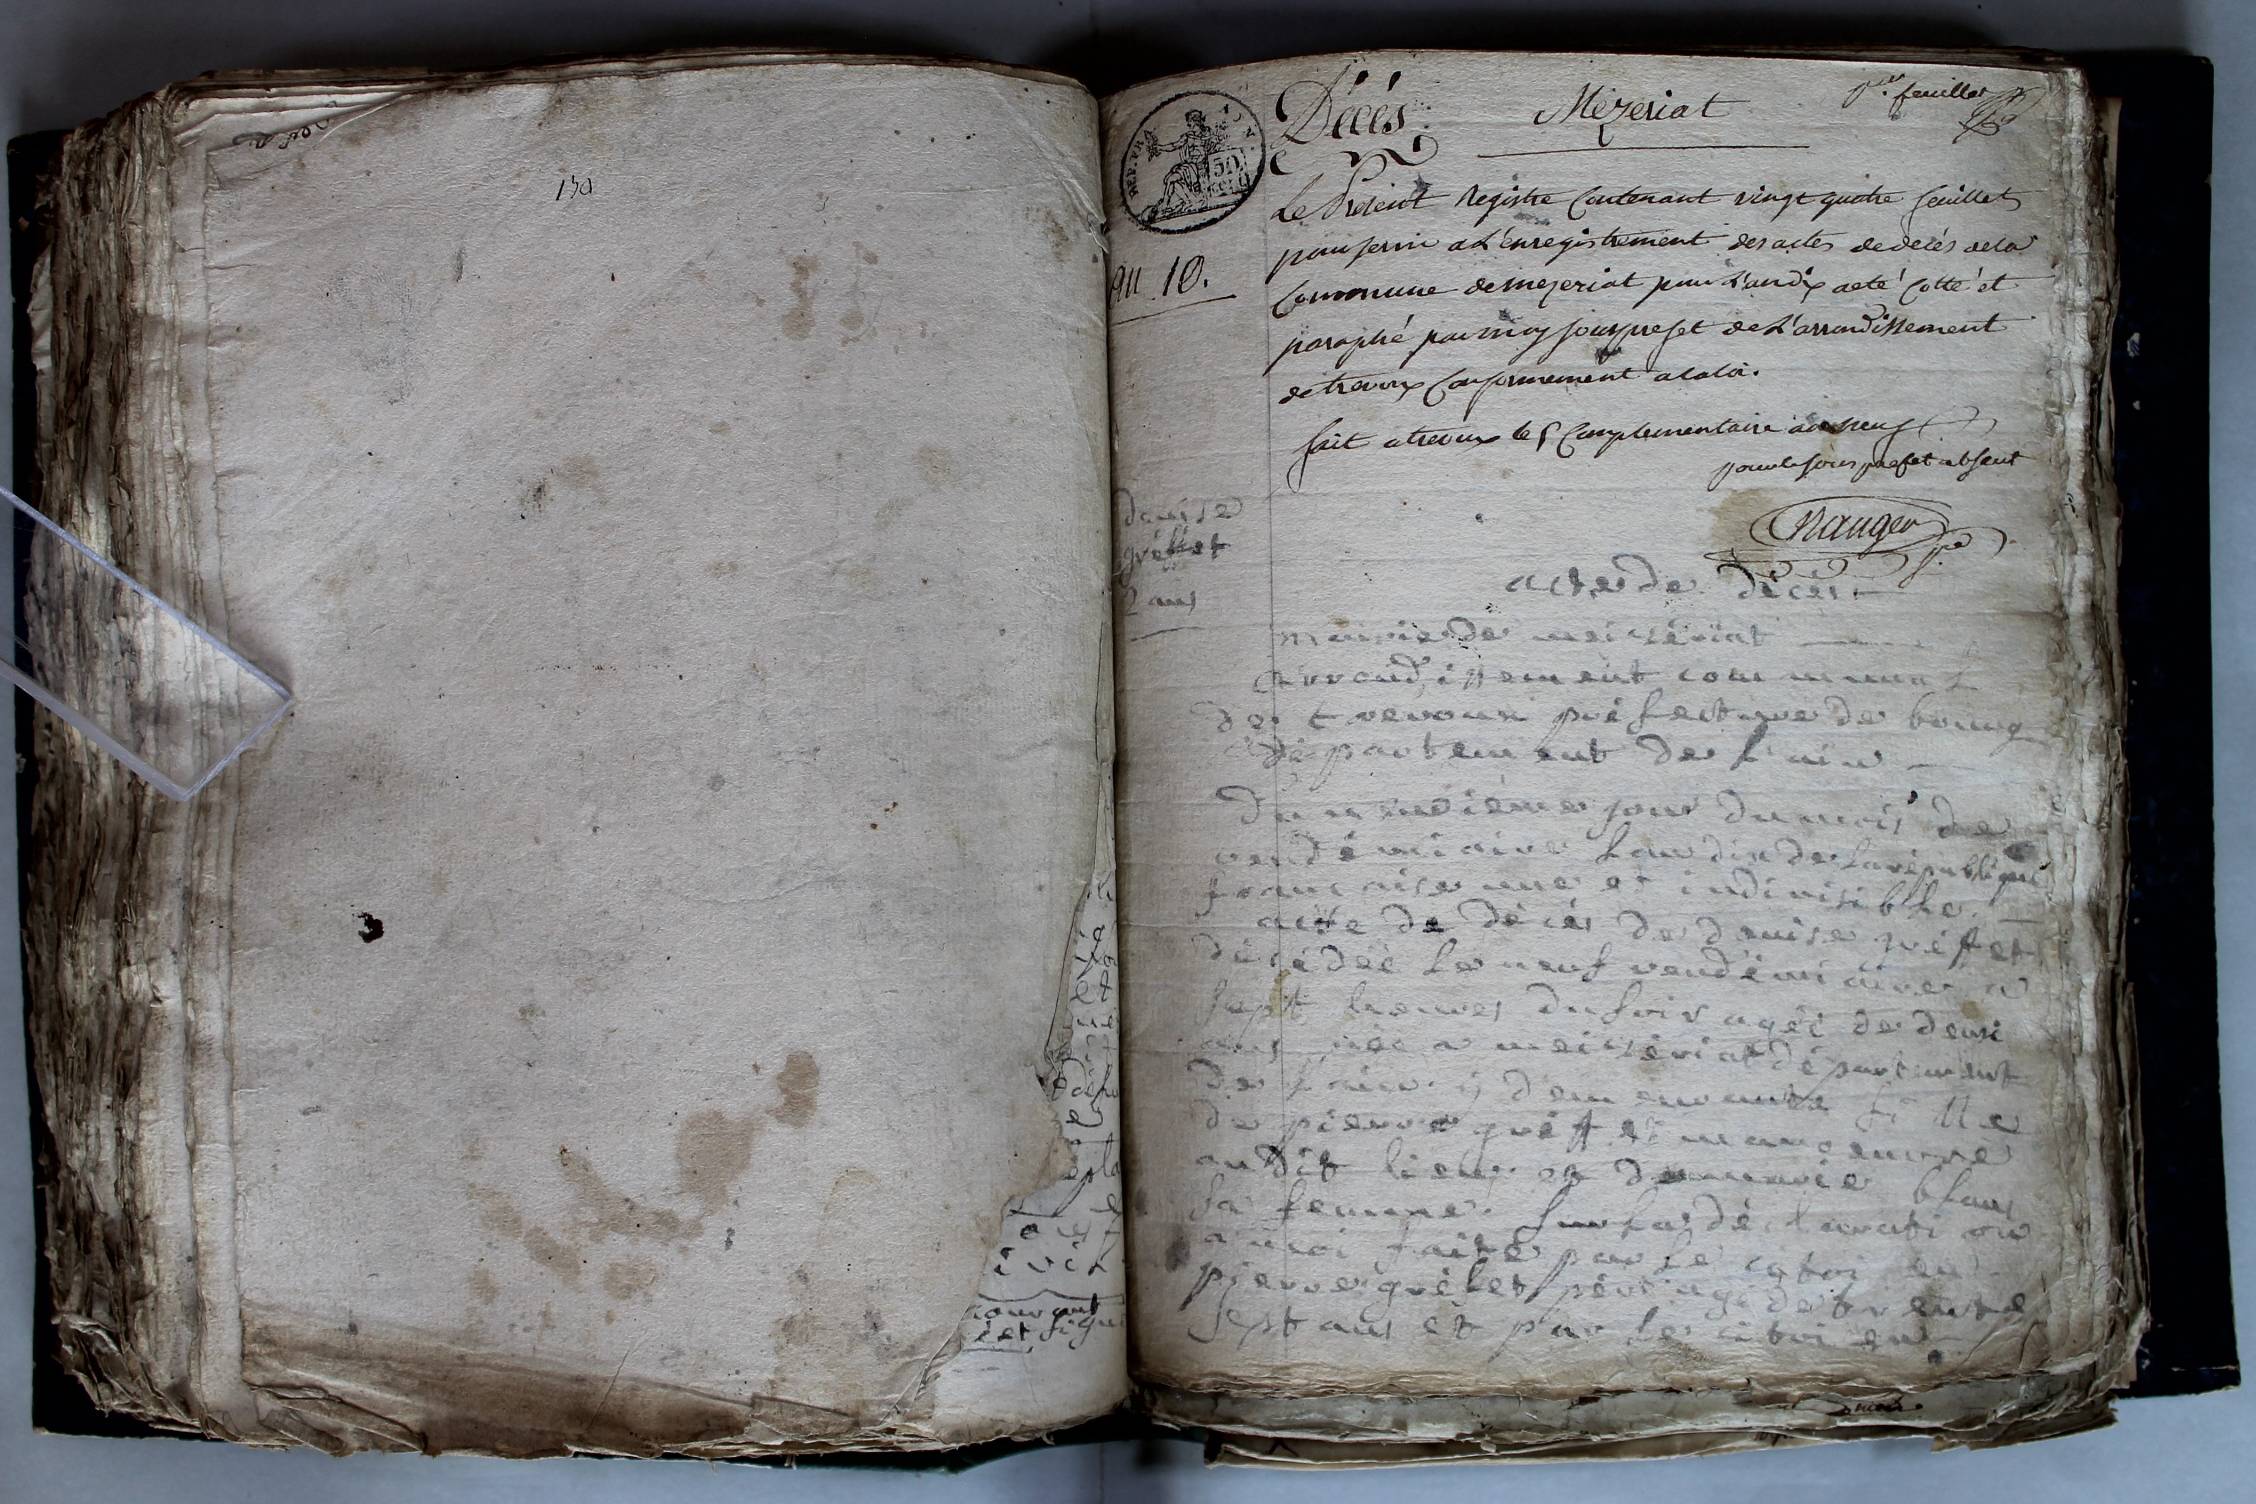 130
Décés
Mézeriat
1er. feuillet
REP. FRA.
50
an 10.
Le Present Registre Contenant vingt quatre feuillets
pour servir a L'enregistrement des actes de decés de la
Commune de mezeriat pour L'an dix a eté Cotté et
paraphé par moy sous prefet de L'arrondissement
de trevoux Conformement a la loi.
fait a trevoux le 5 Complementaire an neuf
pour le sous prefet absent
denise
gréffet
2 ans
acte de décés
mairie de meizériat
arrondissement communal
de trevoux préfecture de bourg
département de l'ain
Du jour du mois de
vendémiaire l'an dix de la république
francaise une et indivisible
acte de décés de denise gréffet
décédéé le neuf vendémiaire a
sept heures du soir agéé de deux
ans néé a meizériat département
de l'ain y demeurante fille
de pierre gréffet manoeuvre
audit lieu et blanc
sa femme. sur la déclaration
a moi faite par le citoien
pierre gréfet agé de trente
sept ans et par le citoien
courant
signé